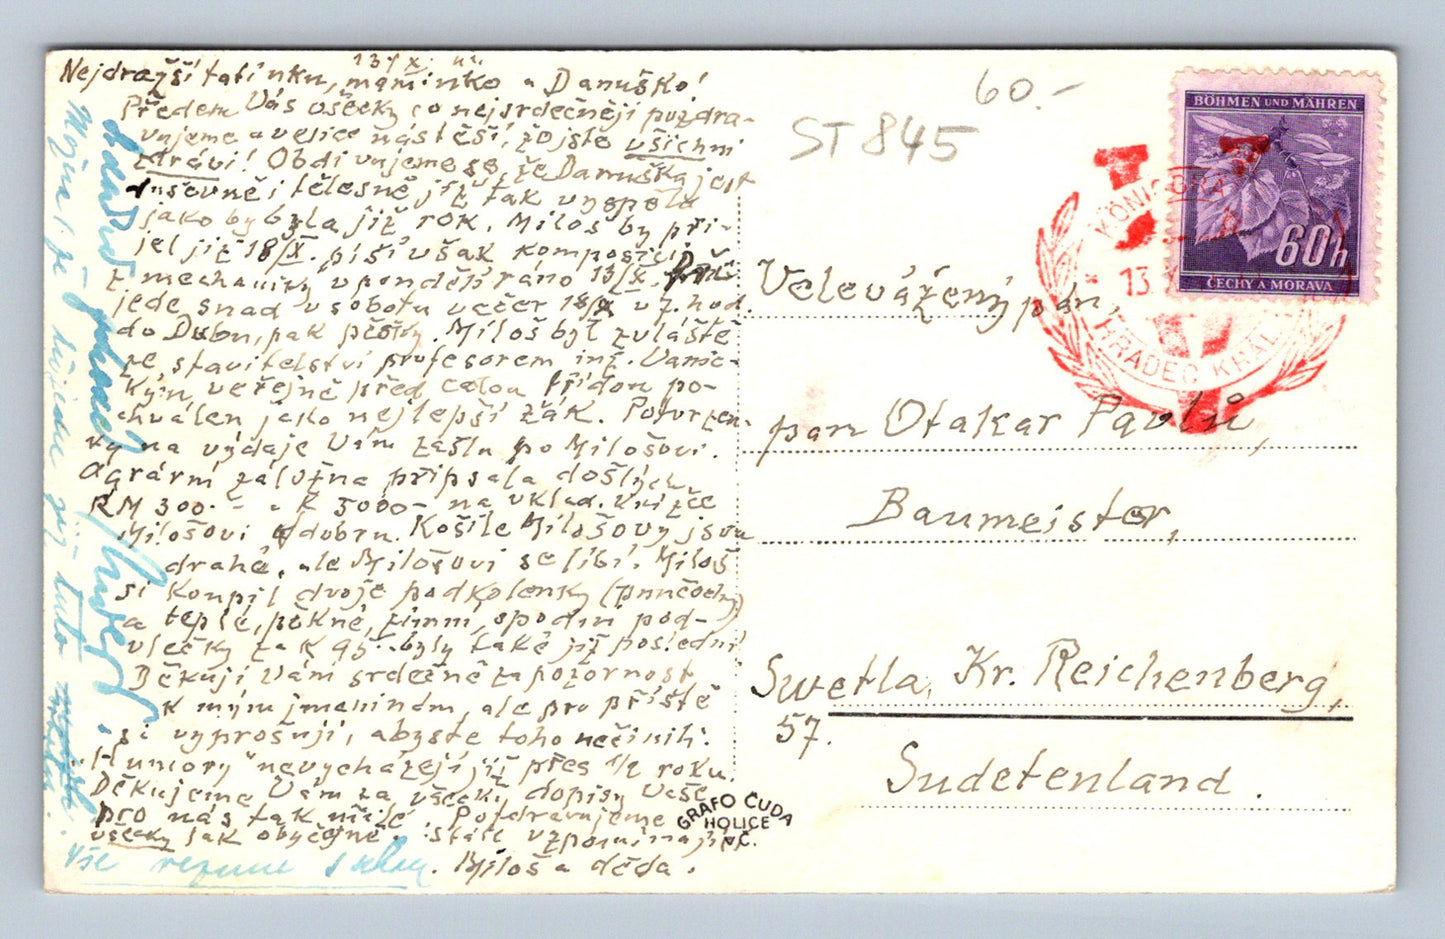 13/X.
Nejdražší tatínku, maminko a Danuško!
Předem Vás všecky co nejsrdečněji pozdra-
vujeme a velice nás těší, že jste všichni
zdrávi! Obdivujeme se, že Danuška jest
duševně i tělesně již tak vyspělá
jako by byla již rok. Miloš by při-
jel již 18/X. píší však komposici
z mechaniky v pondělí ráno 13/X. Při-
jede snad v sobotu večer 18/X v 7. hod.
do Dubu, pak pěšky. Miloš byl zvláště
ze stavitelství profesorem inž. Vaníč-
kým veřejně před celou třídou po-
chválen jako nejlepší žák. Potvrzen-
ky na výdaje Vám zašlu po Milošovi.
Agrární záložna připsala došlých
RM 300.- a K 5000- na vklad. Kníže
Milošovi dobru. Košile Milošovy jsou
drahé, ale Milošovi se líbí. Miloš
si koupil dvoje podkolenky (punčochy)
a teplé, pěkné, zimní, spodní pod-
vlečky za K 95.- byly také již poslední
Děkuji Vám srdečně za pozornost
k mým jmeninám, ale pro příště
si vyprošuji, abyste toho nečinili.
"Humory" nevycházejí již přes 1/2 roku.
Děkujeme Vám za všecky dopisy Vaše
pro nás tak milé. Pozdravujeme
všecky jak obyčejně. Stále vzpomínající
Miloš a děda.
Vše
již tuto
60.-
ST 845
BÖHMEN UND MÄHREN
60h
ČECHY A MORAVA
KÖNIGGRÄ
13
HRADEC KRÁL
Velevážený pán,
pan Otakar Pavlů,
Baumeister,
Swetla, Kr. Reichenberg,
57.
Sudetenland.
GRAFO ČUDA
HOLICE